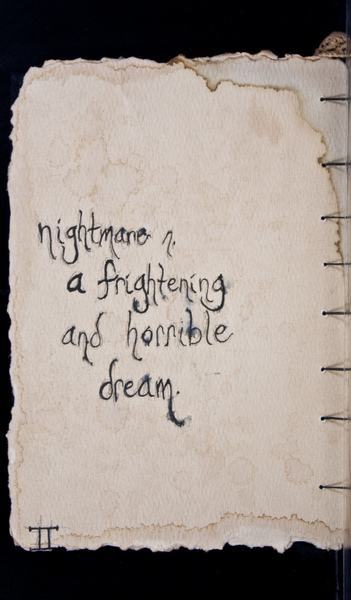 nightmare n.
a frightening
and horrible
dream.
II